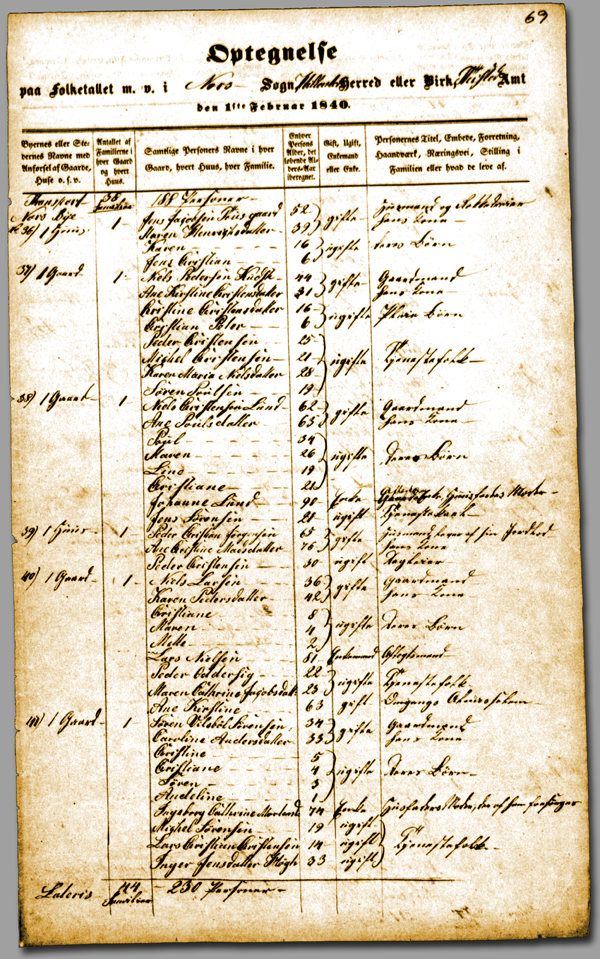 69
Optegnelse
paa Folketallet m. v. i Nors Sogn Hillerslev Herred eller Birk, Thisted Amt
den 1ste Februar 1840.
Byernes eller Stedernes Navne med Anførsel af Gaarde, Huse o. s. v.
Antallet af Familierne i hver Gaard og hvert Huus.
Samtlige Personers Navne i hver Gaard, hvert Huus, hver Familie.
Enhver Persons Alder, det løbende Alders-Aar iberegnet.
Gift, Ugift, Enkemand eller Enke.
Personernes Titel, Embede, Forretning, Haandværk, Næringsvei, Stilling i Familien eller hvad de leve af.
Transport Familier 188 Personer
Nors Bye
36) 1 Huus 1 Jens Jacobsen 52 gifte Huusmand og
Maren 39 hans Kone
Karen 16 ugifte deres Børn
Jens Christian 6
37) 1 Gaard 1 Niels Pedersen 44 gifte Gaardmand
Ane Kirstine Christensdatter 31 hans Kone
Christine Christensdatter 16 ugifte Børn
Christian Peder 6
Peder Christensen 25
Michel Christensen 21 ugifte Tjenestefolk
Karen Maria Nielsdatter 28
Søren Poulsen 19
38) 1 Gaard 1 Niels Christensen Lund 62 gifte Gaardmand
Ane Poulsdatter 63 hans Kone
Poul 34
Maren 26 ugifte deres Børn
Lund 19
Christiane 21
Johanne Lund 90 Enke Huusfaders Moder
Jens Sørensen 21 ugift Tjenestekarl
39) 1 Huus 1 Peder Christian 65 gifte Huusmand lever af sin Jordlod
Ane Christine Madsdatter 76 hans Kone
Peder Christensen 30 ugift Dagleier
40) 1 Gaard 1 Niels Larsen 36 gifte Gaardmand
Karen Pedersdatter 42 hans Kone
Christiane 8
Maren 4 ugifte deres Børn
Mette 2
Lars Nielsen 81 Enkemand Aftægtsmand
Peder Oddersig 22 ugifte Tjenestefolk
Maren Cathrine Jacobsdat 23
Ane Kirstine 63 gift Omgangs Almisselem
41) 1 Gaard 1 Søren Vilebøl Sørensen 34 gifte Gaardmand
Carolina Andersdatter 33 hans Kone
Christine 5
Christiane 4 ugifte deres Børn
Søren 3
Andeline 1
Ingeborg Cathrine 74 Enke Huusfaders Moder, der af ham forsørges
Michel Sørensen 19 ugift
Lars Christian Christensen 14 ugift Tjenestefolk
Inger Jensdatter 33 ugift
Lateris 44 Familier 230 Personer